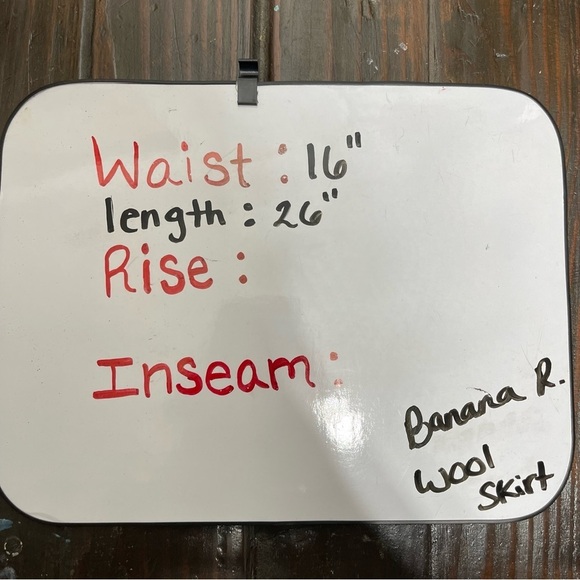 Waist : 16"
length : 26"
Rise :
Inseam :
Banana R.
Wool
Skirt